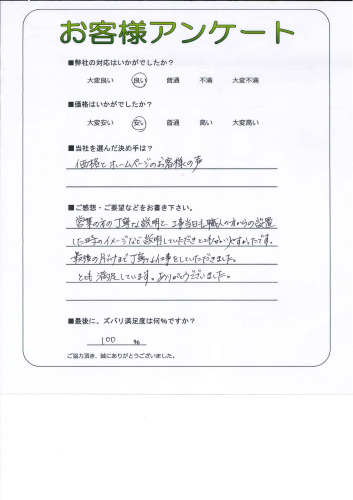 お客様アンケート
■弊社の対応はいかがでしたか？
大変良い 良い 普通 不満 大変不満
■価格はいかがでしたか？
大変安い 安い 普通 高い 大変高い
■当社を選んだ決め手は？
価格とホームページのお客様の声
■ご感想・ご要望などをお書き下さい。
営業の方の丁寧な説明と、工事当日も職人の方からの設置
した時のイメージなど説明していただきとてもわかりやすかったです。
最後の片付けまで丁寧な仕事をしていただきました。
とても満足しています。ありがとうございました。
■最後に、ズバリ満足度は何%ですか？
100 %
ご協力頂き、誠にありがとうございました。